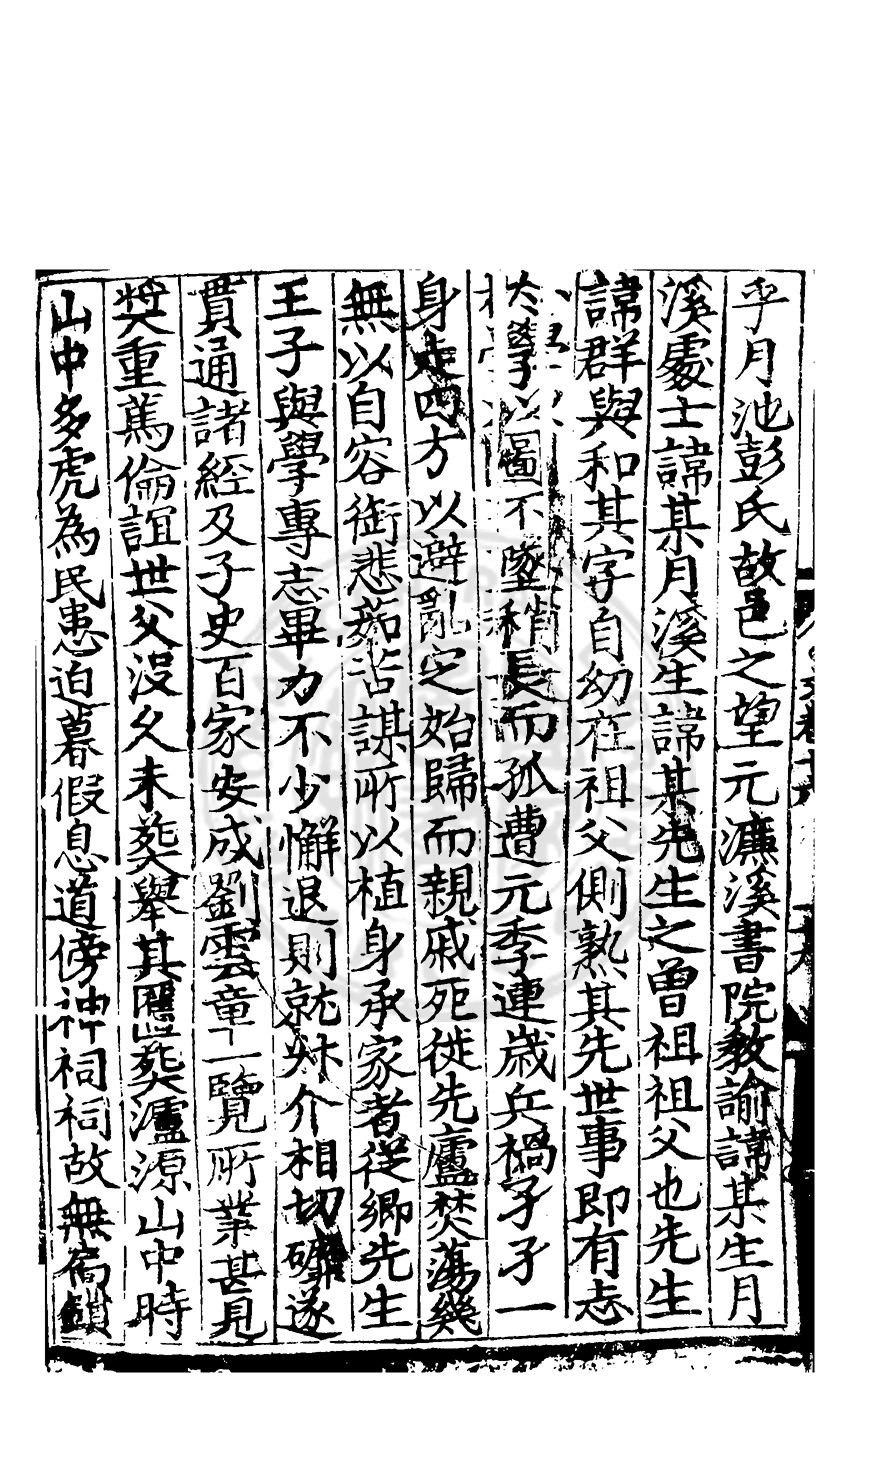 乎月池彭氏故邑之望元濂溪書院教諭諱某生月
溪處士諱某月溪生諱某先生之曾祖祖父也先生
諱群與和其字自幼在祖父側熟其先世事即有志
大學以啚不墜稍長而孤遭元季連歲兵禍孑孑一
身走四方以避亂定始歸而親戚死徙先廬焚蕩幾
無以自容銜悲茹苦謀所以植身承家者從鄉先生
王子與學專志畢力不少懈退則就㳟介相切磋遂
貫通諸經及子史百家安成劉雲章一覽所業甚見
奬重篤倫誼世父沒久未葬舉其匶葬瀘源山中時
山中多虎為民患迫暮假息道傍神祠祠故無扄鎖